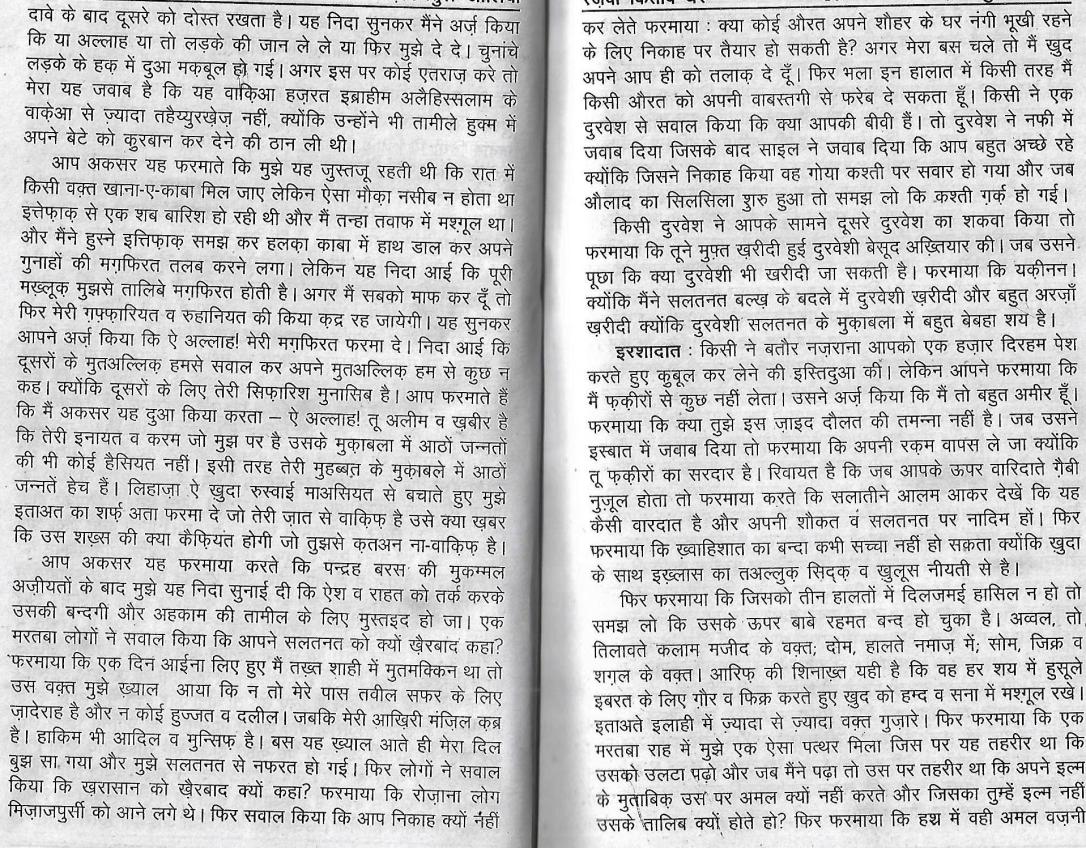 दावे के बाद दूसरे को दोस्त रखता है। यह निदा सुनकर मैंने अर्ज़ किया
कि या अल्लाह या तो लड़के की जान ले ले या फिर मुझे दे दे। चुनांचे
लड़के के हक़ में दुआ मक़बूल हो गई। अगर इस पर कोई एतराज़ करे तो
मेरा यह जवाब है कि यह वाकि़आ हज़रत इब्राहीम अलैहिस्सलाम के
वाक़ेआ से ज़्यादा तहैय्युरख़ेज़ नहीं, क्योंकि उन्होंने भी तामीले हुक्म में
अपने बेटे को क़ुरबान कर देने की ठान ली थी।
आप अकसर यह फ़रमाते कि मुझे यह जुस्तजू रहती थी कि रात में
किसी वक़्त खाना-ए-काबा मिल जाए लेकिन ऐसा मौक़ा नसीब न होता था
इत्तेफ़ाक़ से एक शब बारिश हो रही थी और मैं तन्हा तवाफ में मश्ग़ूल था।
और मैंने हुस्ने इत्तिफ़ाक़ समझ कर हलक़ा काबा में हाथ डाल कर अपने
गुनाहों की मग़फिरत तलब करने लगा। लेकिन यह निदा आई कि पूरी
मख़्लूक़ मुझसे तालिबे मग़फिरत होती है। अगर मैं सबको माफ कर दूँ तो
फिर मेरी ग़फ़्फ़ारियत व रुहानियत की किया क़द्र रह जायेगी। यह सुनकर
आपने अर्ज़ किया कि ऐ अल्लाह! मेरी मग़फिरत फरमा दे। निदा आई कि
दूसरों के मुतअल्लिक़ हमसे सवाल कर अपने मुतअल्लिक़ हम से कुछ न
कह। क्योंकि दूसरों के लिए तेरी सिफ़ारिश मुनासिब है। आप फरमाते हैं
कि मैं अकसर यह दुआ किया करता – ऐ अल्लाह! तू अलीम व ख़बीर है
कि तेरी इनायत व करम जो मुझ पर है उसके मुक़ाबला में आठों जन्नतों
की भी कोई हैसियत नहीं। इसी तरह तेरी मुहब्बत के मुक़ाबले में आठों
जन्नतें हेच हैं। लिहाज़ा ऐ ख़ुदा रुस्वाई माअसियत से बचाते हुए मुझे
इताअत का शर्फ़ अता फरमा दे जो तेरी ज़ात से वाक़िफ़ है उसे क्या ख़बर
कि उस शख़्स की क्या कैफ़ियंत होगी जो तुझसे क़तअन ना-वाक़िफ़ है।
आप अकसर यह फरमाया करते कि पन्द्रह बरस की मुकम्मल
अज़ीयतों के बाद मुझे यह निदा सुनाई दी कि ऐश व राहत को तर्क करके
उसकी बन्दगी और अहकाम की तामील के लिए मुस्तइद हो जा। एक
मरतबा लोगों ने सवाल किया कि आपने सलतनत को क्यों ख़ैरबाद कहा?
फरमाया कि एक दिन आईना लिए हुए मैं तख़्त शाही में मुतमक्किन था तो
उस वक़्त मुझे ख़्याल आया कि न तो मेरे पास तवील सफर के लिए
ज़ादेराह है और न कोई हुज्जत व दलील। जबकि मेरी आख़िरी मंज़िल क़ब्र
है। हाकिम भी आदिल व मुन्सिफ़ है। बस यह ख़्याल आते ही मेरा दिल
बुझ सा गया और मुझे सलतनत से नफरत हो गई। फिर लोगों ने सवाल
किया कि ख़रासान को ख़ैरबाद क्यों कहा? फरमाया कि रोज़ाना लोग
मिज़ाजपुर्सी को आने लगे थे। फिर सवाल किया कि आप निकाह क्यों नहीं
कर लेते फरमाया : क्या कोई औरत अपने शौहर के घर नंगी भूखी रहने
के लिए निकाह पर तैयार हो सकती है? अगर मेरा बस चले तो मैं ख़ुद
अपने आप ही को तलाक़ दे दूँ। फिर भला इन हालात में किसी तरह मैं
किसी औरत को अपनी वाबस्तगी से फरेब दे सकता हूँ। किसी ने एक
दुरवेश से सवाल किया कि क्या आपकी बीवी हैं। तो दुरवेश ने नफी में
जवाब दिया जिसके बाद साइल ने जवाब दिया कि आप बहुत अच्छे रहे
क्योंकि जिसने निकाह किया वह गोया कश्ती पर सवार हो गया और जब
औलाद का सिलसिला शुरु हुआ तो समझ लो कि कश्ती ग़र्क़ हो गई।
किसी दुरवेश ने आपके सामने दूसरे दुरवेश का शकवा किया तो
फरमाया कि तूने मुफ़्त ख़रीदी हुई दुरवेशी बेसूद अख़्तियार की। जब उसने
पूछा कि क्या दुरवेशी भी खरीदी जा सकती है। फरमाया कि यक़ीनन।
क्योंकि मैंने सलतनत बल्ख़ के बदले में दुरवेशी ख़रीदी और बहुत अरज़ाँ
ख़रीदी क्योंकि दुरवेशी सलतनत के मुक़ाबला में बहुत बेबहा शय है।
इरशादात : किसी ने बतौर नज़राना आपको एक हज़ार दिरहम पेश
करते हुए क़ुबूल कर लेने की इस्तिदुआ की। लेकिन आपने फरमाया कि
मैं फ़क़ीरों से कुछ नहीं लेता। उसने अर्ज़ किया कि मैं तो बहुत अमीर हूँ।
फरमाया कि क्या तुझे इस ज़ाइद दौलत की तमन्ना नहीं है। जब उसने
इस्बात में जवाब दिया तो फरमाया कि अपनी रक़म वापस ले जा क्योंकि
तू फ़क़ीरों का सरदार है। रिवायत है कि जब आपके ऊपर वारिदाते ग़ैबी
नुज़ूल होता तो फरमाया करते कि सलातीने आलम आकर देखें कि यह
कैसी वारदात है और अपनी शौकत व सलतनत पर नादिम हों। फिर
फरमाया कि ख़्वाहिशात का बन्दा कभी सच्चा नहीं हो सकता क्योंकि ख़ुदा
के साथ इख़्लास का तअल्लुक़ सिद्क़ व ख़ुलूस नीयती से है।
फिर फरमाया कि जिसको तीन हालतों में दिलजमई हासिल न हो तो
समझ लो कि उसके ऊपर बाबे रहमत बन्द हो चुका है। अव्वल, तो
तिलावते कलाम मजीद के वक़्त; दोम, हालते नमाज़ में; सोम, जिक्र व
शग़ल के वक़्त। आरिफ़ की शिनाख़्त यही है कि वह हर शय में हुसूले
इबरत के लिए ग़ौर व फिक्र करते हुए ख़ुद को हम्द व सना में मश्ग़ूल रखे।
इताअते इलाही में ज़्यादा से ज़्यादा वक़्त गुज़ारे। फिर फरमाया कि एक
मरतबा राह में मुझे एक ऐसा पत्थर मिला जिस पर यह तहरीर था कि
उसको उलटा पढ़ो और जब मैंने पढ़ा तो उस पर तहरीर था कि अपने इल्म
के मुताबिक़ उस पर अमल क्यों नहीं करते और जिसका तुम्हें इल्म नहीं
उसके तालिब क्यों होते हो? फिर फरमाया कि हश्र में वही अमल वज़नी